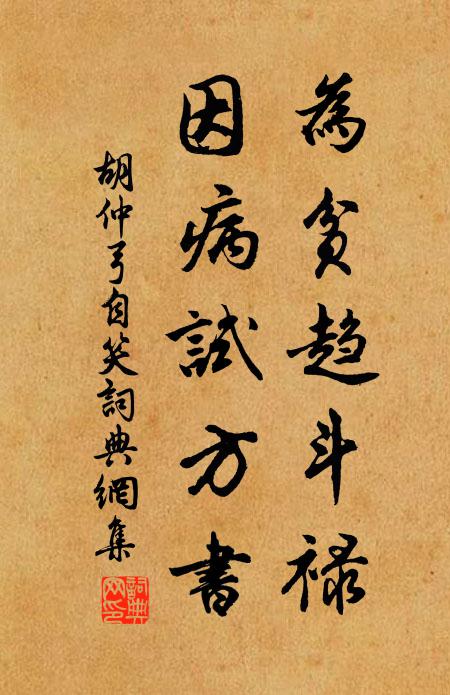 為貧趨斗祿
因病試方書
胡仲弓自笑詞典網集
詞典
网印